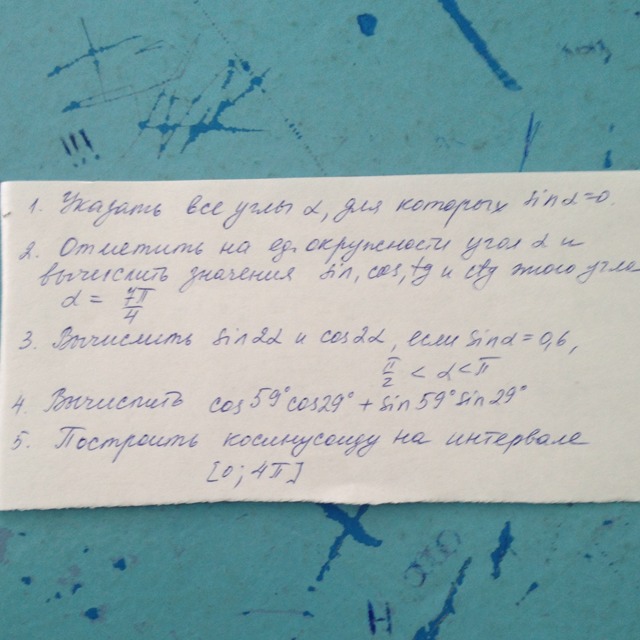 1. Указать все углы α, для которых sinα=0.
2. Отметить на ед. окружности угол α и
вычислить значения sin, cos, tg и ctg этого угла
α = 7π/4
3. Вычислить sin2α и cos2α, если sinα=0,6,
π/2 < α < π
4. Вычислить cos59°cos29° + sin59°sin29°
5. Построить косинусоиду на интервале
[0; 4π]
Н